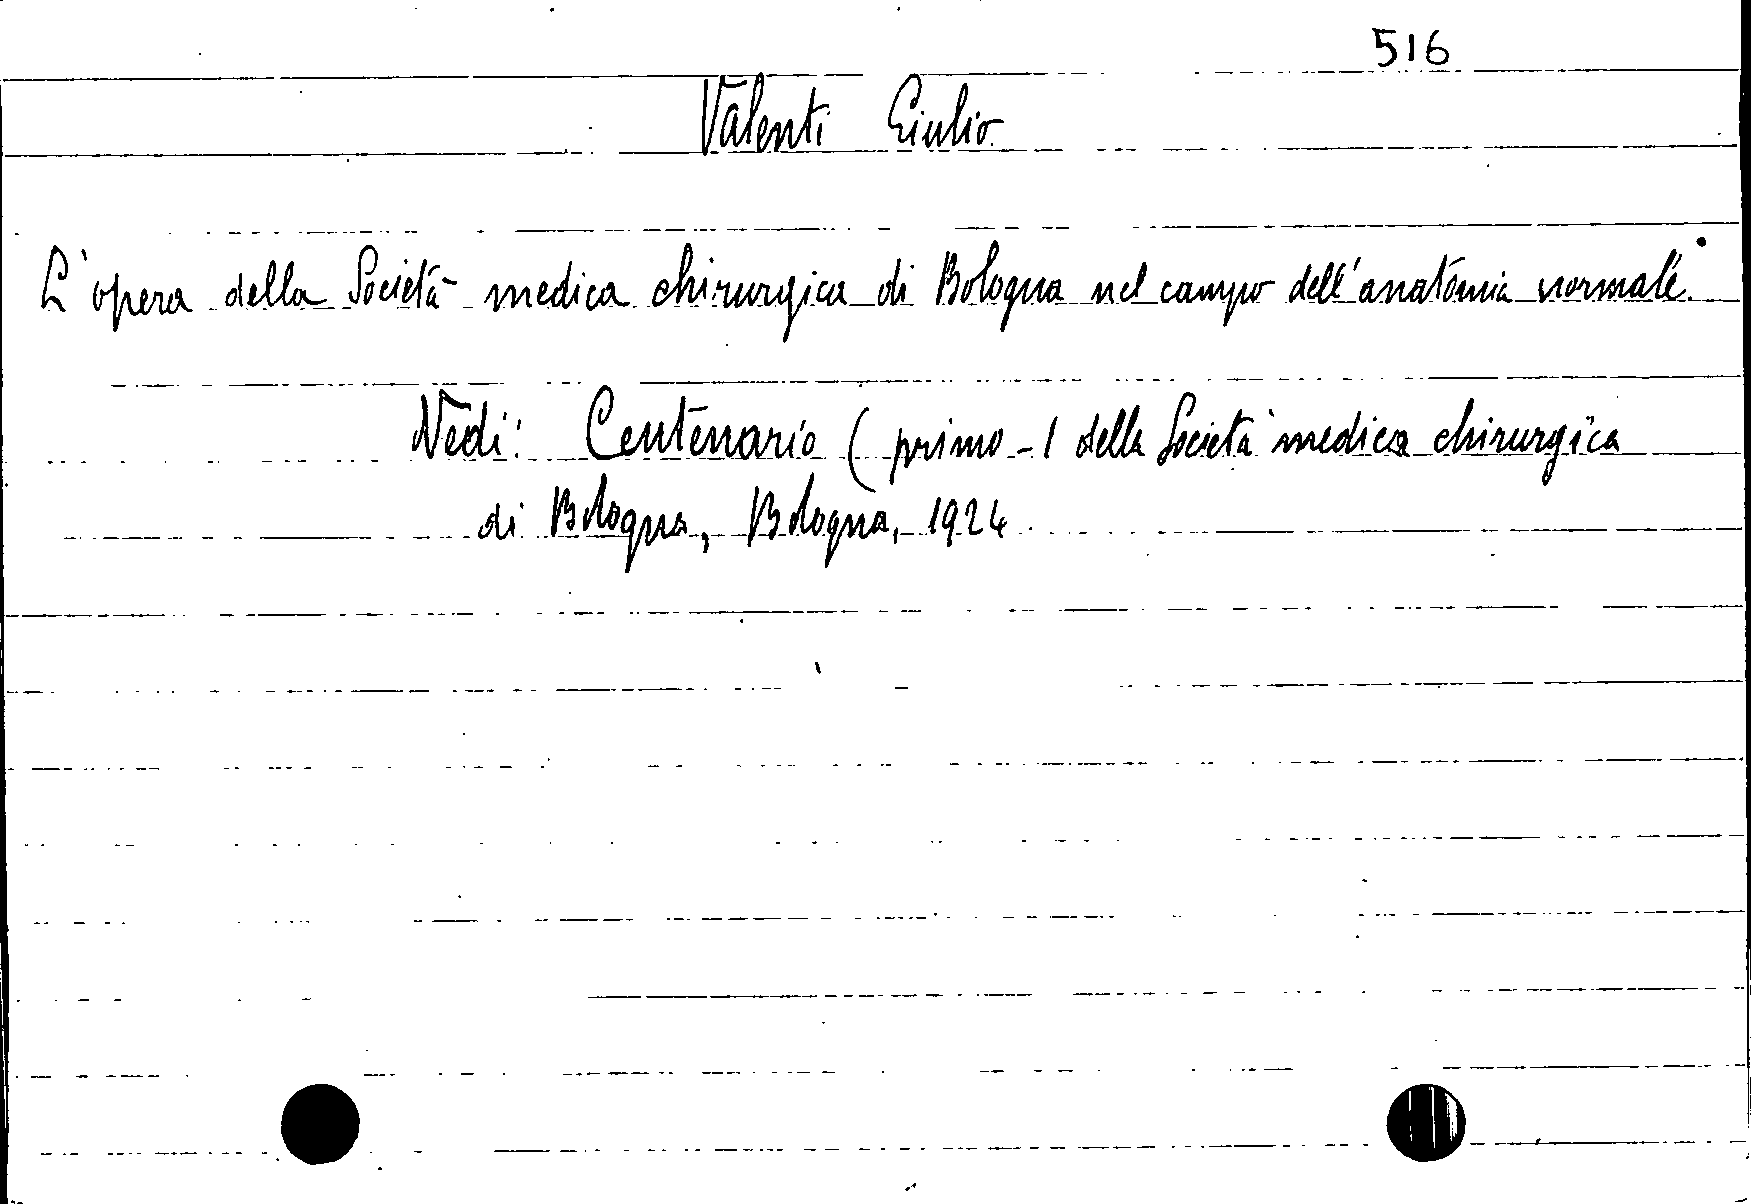 516
Valenti Giulio
L'opera della Società medica chirurgica di Bologna nel campo dell'anatomia normale.
Vedi: Centenario (primo-) della Società medica chirurgica
di Bologna, Bologna, 1924.